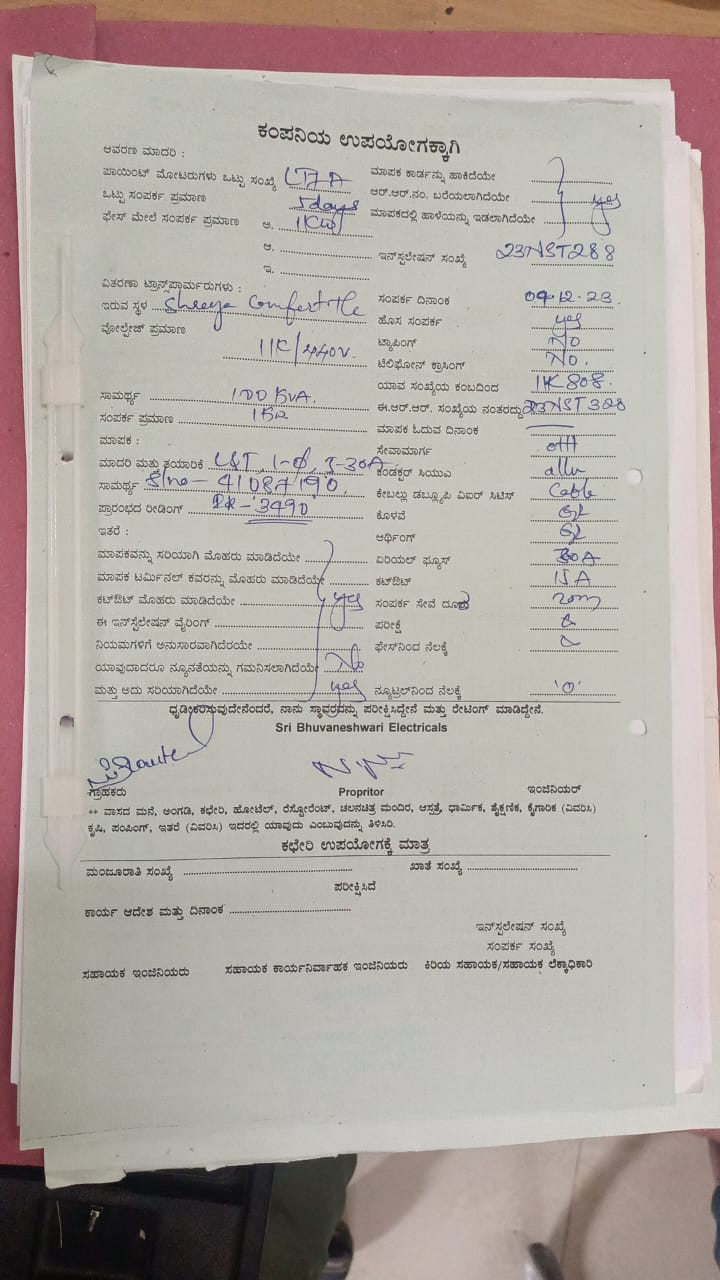 ಕಂಪನಿಯ ಉಪಯೋಗಕ್ಕಾಗಿ
ಆವರಣ ಮಾದರಿ :
ಪಾಯಿಂಟ್ ಮೋಟರುಗಳು ಒಟ್ಟು ಸಂಖ್ಯೆ ಮಾಪಕ ಕಾರ್ಡನ್ನು ಹಾಕಿದೆಯೇ
ಒಟ್ಟು ಸಂಪರ್ಕ ಪ್ರಮಾಣ 5days ಆರ್.ಆರ್.ನಂ. ಬರೆಯಲಾಗಿದೆಯೇ yes
ಫೇಸ್ ಮೇಲೆ ಸಂಪರ್ಕ ಪ್ರಮಾಣ ಅ. 1KW ಮಾಪಕದಲ್ಲಿ ಹಾಳೆಯನ್ನು ಇಡಲಾಗಿದೆಯೇ
ಆ. ಇನ್‌ಸ್ಟಲೇಷನ್ ಸಂಖ್ಯೆ 23NST288
ಇ.
ವಿತರಣಾ ಟ್ರಾನ್ಸ್‌ಫಾರ್ಮರುಗಳು :
ಇರುವ ಸ್ಥಳ Shreya Comfert ಸಂಪರ್ಕ ದಿನಾಂಕ 04.12.23.
ವೋಲ್ಟೇಜ್ ಪ್ರಮಾಣ ಹೊಸ ಸಂಪರ್ಕ yes
11K/440V. ಟ್ಯಾಪಿಂಗ್ NO
ಟೆಲಿಫೋನ್ ಕ್ರಾಸಿಂಗ್ NO.
ಯಾವ ಸಂಖ್ಯೆಯ ಕಂಬದಿಂದ 11K808.
ಸಾಮರ್ಥ್ಯ 100 KVA. ಈ.ಆರ್.ಆರ್. ಸಂಖ್ಯೆಯ ನಂತರದ್ದು 23NST328
ಸಂಪರ್ಕ ಪ್ರಮಾಣ ಮಾಪಕ ಓದುವ ದಿನಾಂಕ
ಮಾಪಕ : ಸೇವಾಮಾರ್ಗ OH
ಮಾದರಿ ಮತ್ತು ತಯಾರಿಕೆ L&T, 1-Ø, 5-30A ಕಂಡಕ್ಟರ್ ಸಿಯುಎ
ಸಾಮರ್ಥ್ಯ S/no - 41087190, ಕೇಬಲ್ಲು ಡಬ್ಲ್ಯೂಪಿ ವಿಐರ್ ಸಿಟಿಸ್ Cable
ಪ್ರಾರಂಭದ ರೀಡಿಂಗ್ RR-3490 ಕೊಳವೆ
ಇತರೆ : ಆರ್ಥಿಂಗ್
ಮಾಪಕವನ್ನು ಸರಿಯಾಗಿ ಮೊಹರು ಮಾಡಿದೆಯೇ ಏರಿಯಲ್ ಫ್ಯೂಸ್ 30A
ಮಾಪಕ ಟರ್ಮಿನಲ್ ಕವರನ್ನು ಮೊಹರು ಮಾಡಿದೆಯೇ ಕಟ್‌ಔಟ್ 15A
ಕಟ್‌ಔಟ್ ಮೊಹರು ಮಾಡಿದೆಯೇ yes ಸಂಪರ್ಕ ಸೇವೆ ದೂರ 20m
ಈ ಇನ್‌ಸ್ಟೆಲೇಷನ್ ವೈರಿಂಗ್ ಪರೀಕ್ಷೆ
ನಿಯಮಗಳಿಗೆ ಅನುಸಾರವಾಗಿದೆರಯೇ ಫೇಸ್‌ನಿಂದ ನೆಲಕ್ಕೆ
ಯಾವುದಾದರೂ ನ್ಯೂನತೆಯನ್ನು ಗಮನಿಸಲಾಗಿದೆಯೇ No
ಮತ್ತು ಅದು ಸರಿಯಾಗಿದೆಯೇ yes ನ್ಯೂಟ್ರಲ್‌ನಿಂದ ನೆಲಕ್ಕೆ '0'
ಧೃಢೀಕರಿಸುವುದೇನೆಂದರೆ, ನಾನು ಸ್ಥಾವರವನ್ನು ಪರೀಕ್ಷಿಸಿದ್ದೇನೆ ಮತ್ತು ರೇಟಿಂಗ್ ಮಾಡಿದ್ದೇನೆ.
Sri Bhuvaneshwari Electricals
ಗ್ರಾಹಕರು Propritor ಇಂಜಿನಿಯರ್
++ ವಾಸದ ಮನೆ, ಅಂಗಡಿ, ಕಛೇರಿ, ಹೋಟೆಲ್, ರೆಸ್ಟೋರೆಂಟ್, ಚಲನಚಿತ್ರ ಮಂದಿರ, ಆಸ್ಪತ್ರೆ, ಧಾರ್ಮಿಕ, ಶೈಕ್ಷಣಿಕ, ಕೈಗಾರಿಕೆ (ವಿವರಿಸಿ)
ಕೃಷಿ, ಪಂಪಿಂಗ್, ಇತರೆ (ವಿವರಿಸಿ) ಇದರಲ್ಲಿ ಯಾವುದು ಎಂಬುವುದನ್ನು ತಿಳಿಸಿರಿ.
ಕಛೇರಿ ಉಪಯೋಗಕ್ಕೆ ಮಾತ್ರ
ಮಂಜೂರಾತಿ ಸಂಖ್ಯೆ ಖಾತೆ ಸಂಖ್ಯೆ
ಪರೀಕ್ಷಿಸಿದೆ
ಕಾರ್ಯ ಆದೇಶ ಮತ್ತು ದಿನಾಂಕ
ಇನ್‌ಸ್ಟಲೇಷನ್ ಸಂಖ್ಯೆ
ಸಂಪರ್ಕ ಸಂಖ್ಯೆ
ಸಹಾಯಕ ಇಂಜಿನಿಯರು ಸಹಾಯಕ ಕಾರ್ಯನಿರ್ವಾಹಕ ಇಂಜಿನಿಯರು ಕಿರಿಯ ಸಹಾಯಕ/ಸಹಾಯಕ ಲೆಕ್ಕಾಧಿಕಾರಿ